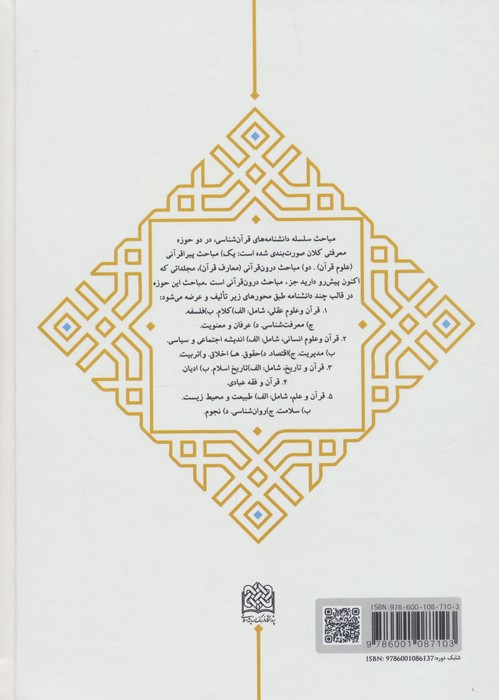 مباحث سلسله دانشنامه‌های قرآن‌شناسی، در دو حوزه
معرفتی کلان صورت‌بندی شده است: یک) مباحث پیراقرآنی
(علوم قرآن) . دو) مباحث درون‌قرآنی (معارف قرآن)، مجلداتی که
اکنون پیش‌رو دارید جزء مباحث درون‌قرآنی است .مباحث این حوزه
در قالب چند دانشنامه طبق محورهای زیر تألیف و عرضه می‌شود:
۱. قرآن و علوم عقلی، شامل: الف)کلام. ب)فلسفه.
ج) معرفت‌شناسی. د) عرفان و معنویت.
۲. قرآن و علوم انسانی، شامل: الف) اندیشه اجتماعی و سیاسی.
ب) مدیریت. ج)اقتصاد. د)حقوق. هـ) اخلاق. و)تربیت.
۳. قرآن و تاریخ، شامل: الف)تاریخ اسلام. ب) ادیان.
۴. قرآن و فقه عبادی.
۵. قرآن و علم، شامل: الف) طبیعت و محیط زیست.
ب) سلامت. ج)روان‌شناسی. د) نجوم.
ISBN: 978-600-108-710-3
9 786001 087103
شابک دوره: ISBN: 9786001086137